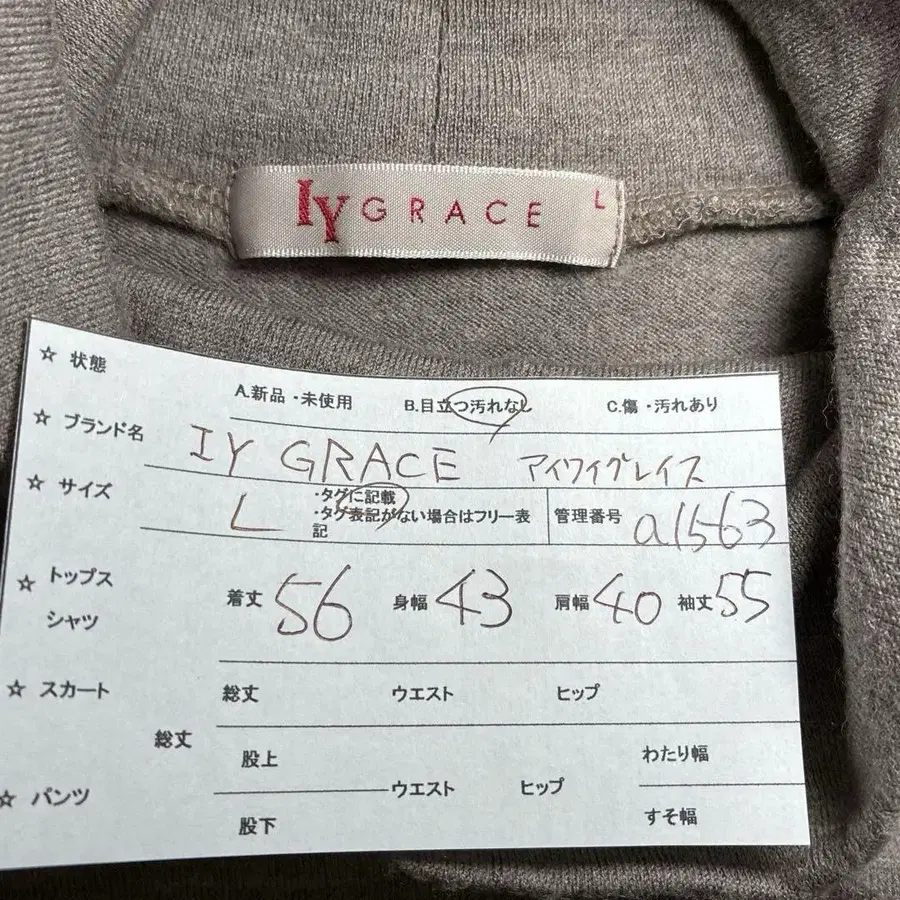 IY GRACE L
☆ 状態 A.新品・未使用 B.目立つ汚れなし C.傷・汚れあり
☆ ブランド名 IY GRACE アイワイグレイス
☆ サイズ L ・タグに記載
・タグ表記がない場合はフリー表
記
管理番号 a1563
☆ トップス
シャツ
着丈 56 身幅 43 肩幅 40 袖丈 55
☆ スカート 総丈 ウエスト ヒップ
☆ パンツ 総丈 股上 ウエスト ヒップ わたり幅
股下 すそ幅